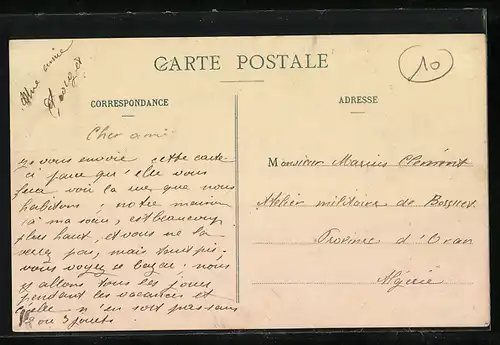 CARTE POSTALE
10
CORRESPONDANCE
ADRESSE
Cher ami
je vous envoie cette carte-
ci parce qu'elle vous
fera voir la rue que nous
habitons ; notre maison
(à ma sœur), est beaucoup
plus haut, et vous ne la
verrez pas, mais tant pis-
vous voyez le bazar ; nous
y allons tous les jours
pendant les vacances et
n'en sort pas sans
ou 3 jouets.
Monsieur Marius Clément
Atelier militaire de Bossuet
Province d'Oran
Algérie